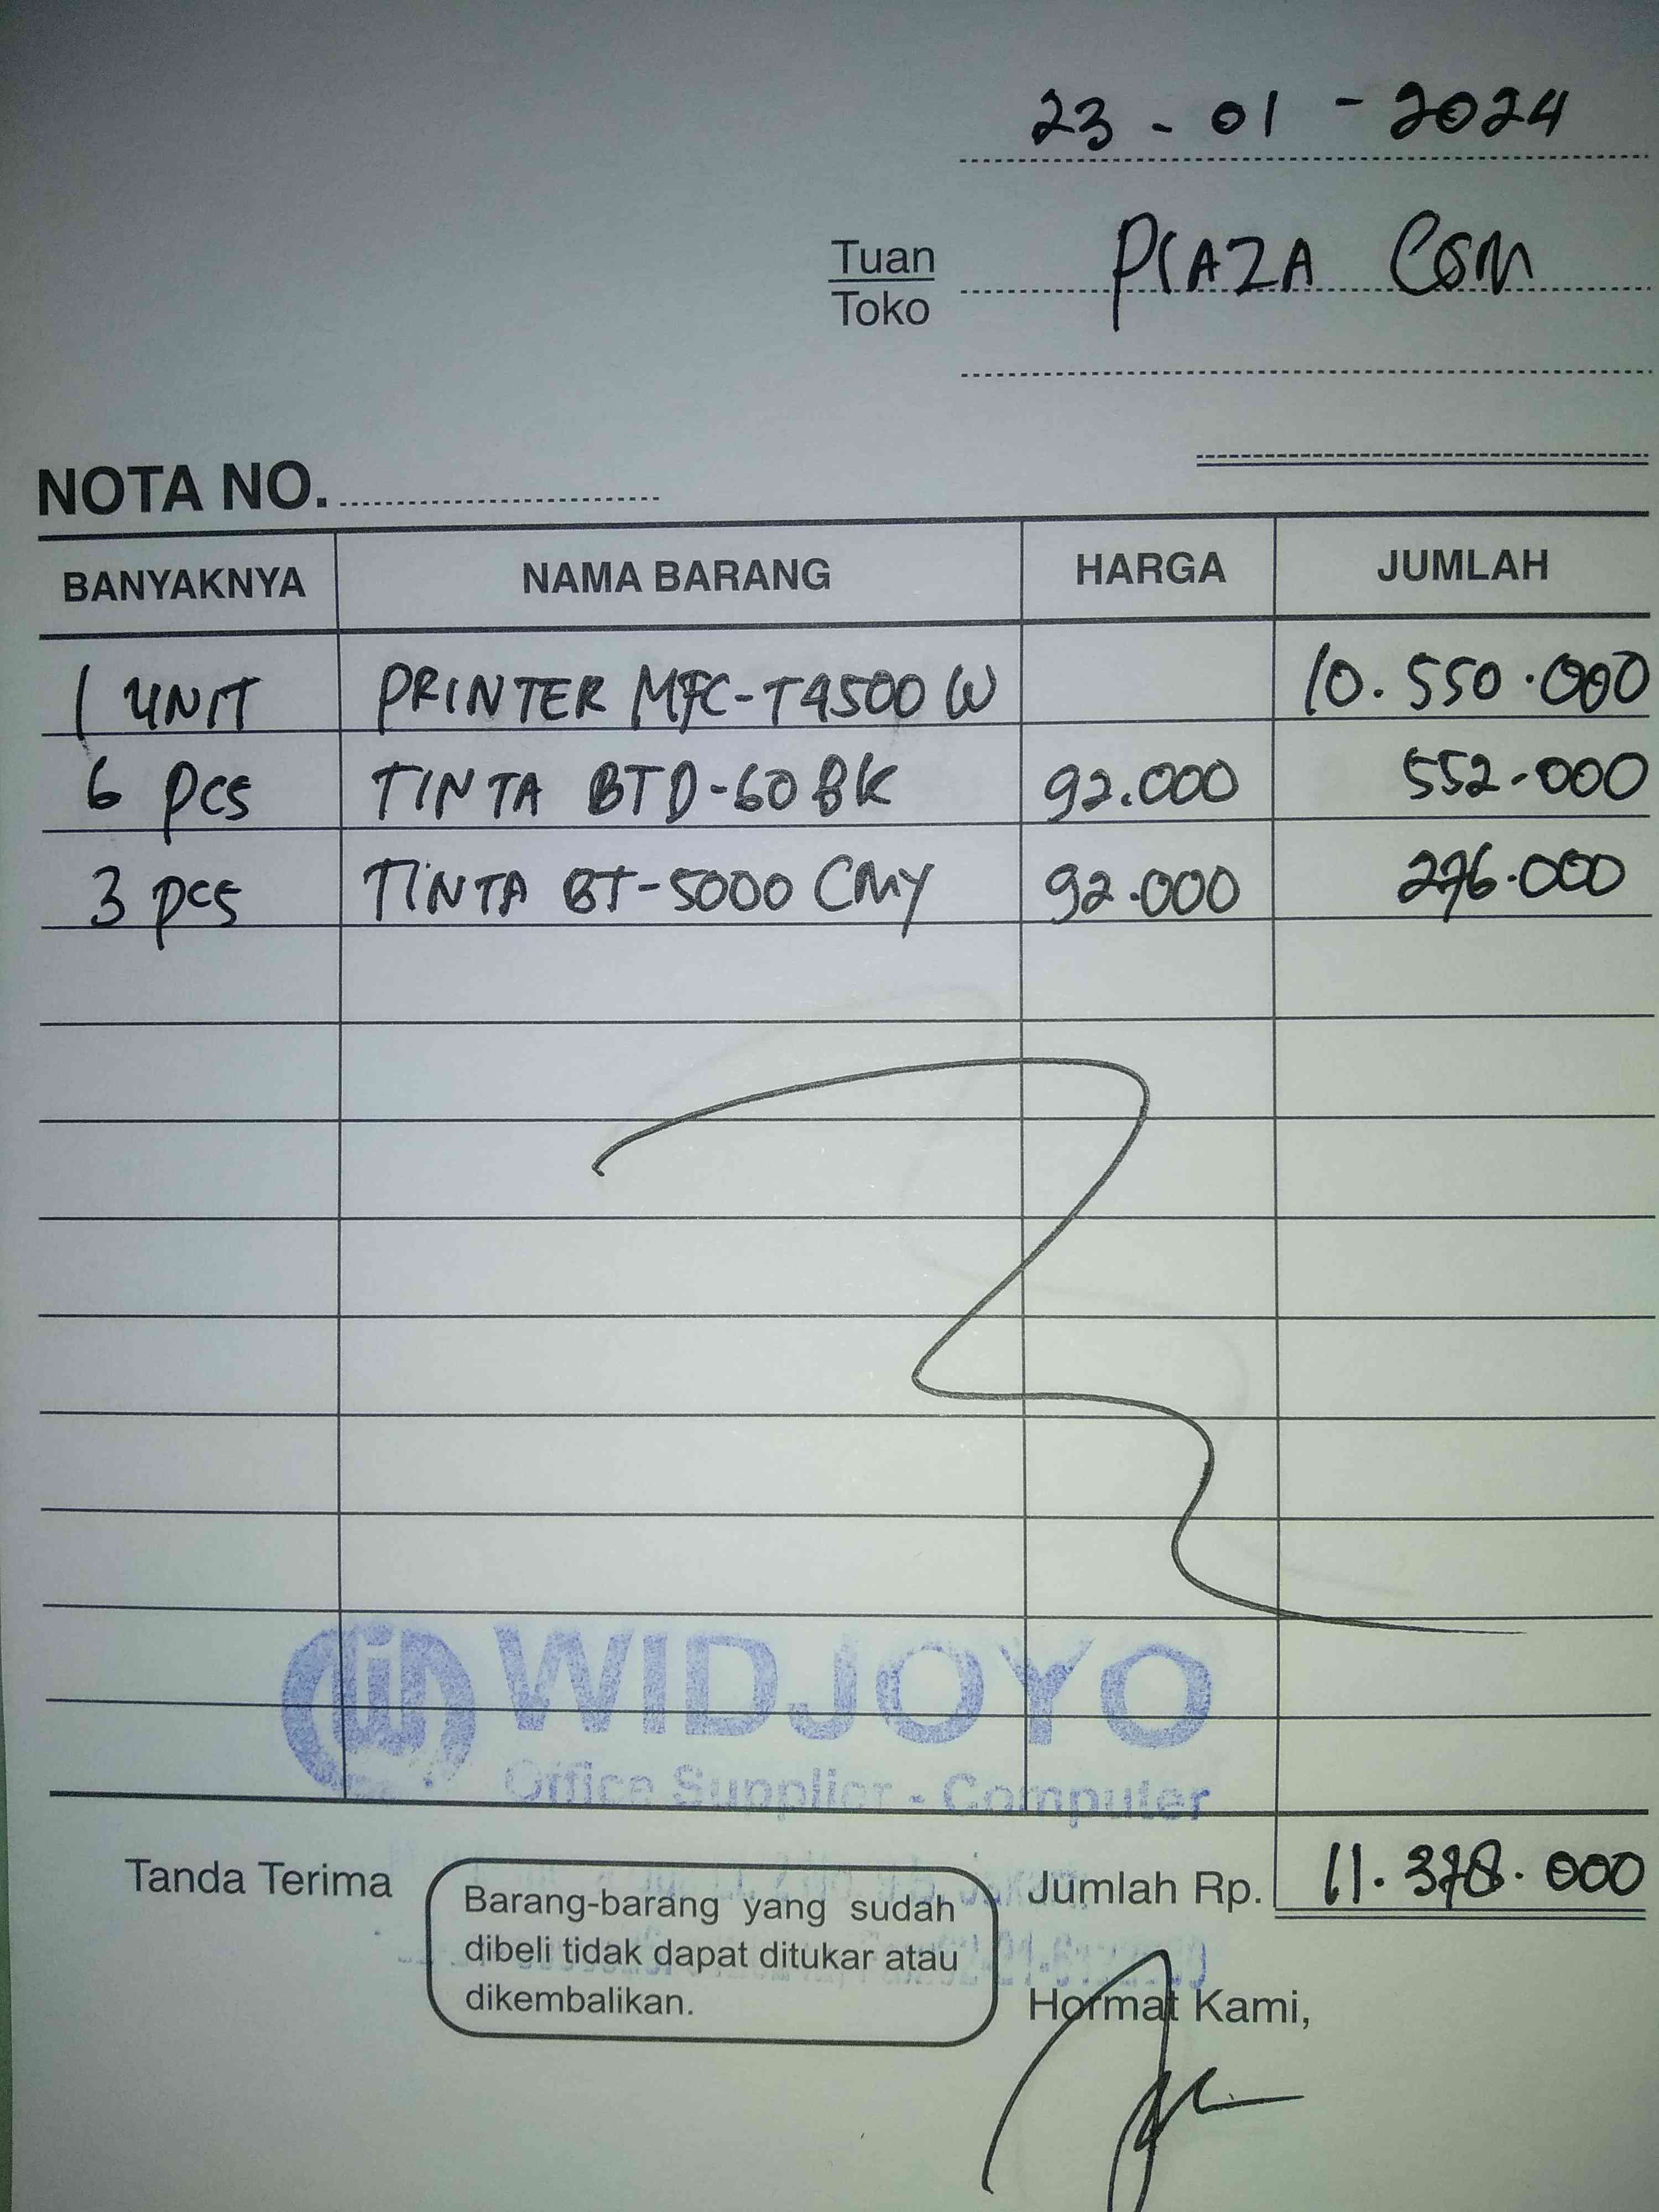 23 - 01 - 2024
Tuan
Toko
PLAZA COM
NOTA NO.
BANYAKNYA NAMA BARANG HARGA JUMLAH
1 UNIT PRINTER MFC-T4500 W 10.550.000
6 pcs TINTA BTD-60 BK 92.000 552.000
3 pcs TINTA BT-5000 CMY 92.000 276.000
WIDJOYO
Office Supplier - Computer
Tanda Terima
Barang-barang yang sudah
dibeli tidak dapat ditukar atau
dikembalikan.
Jumlah Rp. 11.378.000
Hormat Kami,